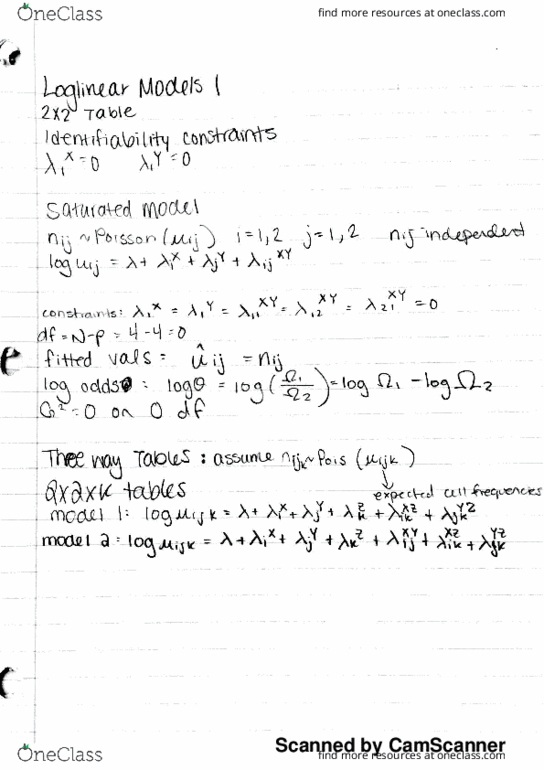 OneClass
find more resources at oneclass.com
Loglinear Models 1
2x2 Table
Identifiability constraints
λ₁ˣ = 0 λ₁ʸ = 0
Saturated model
nᵢⱼ ~ Poisson(μᵢⱼ) i=1,2 j=1,2 nᵢⱼ independent
log μᵢⱼ = λ + λᵢˣ + λⱼʸ + λᵢⱼˣʸ
constraints: λ₁ˣ = λ₁ʸ = λ₁₁ˣʸ = λ₁₂ˣʸ = λ₂₁ˣʸ = 0
df = N-p = 4-4=0
fitted vals: μ̂ᵢⱼ = nᵢⱼ
log odds: logθ = log(Ω₁/Ω₂) = log Ω₁ - log Ω₂
G² = 0 on 0 df
Three way Tables: assume nᵢⱼₖ ~ Pois (μᵢⱼₖ)
expected cell frequencies
2x2xK tables
model 1: log μᵢⱼₖ = λ + λᵢˣ + λⱼʸ + λₖᶻ + λᵢₖˣᶻ + λⱼₖʸᶻ
model 2: log μᵢⱼₖ = λ + λᵢˣ + λⱼʸ + λₖᶻ + λᵢⱼˣʸ + λᵢₖˣᶻ + λⱼₖʸᶻ
Scanned by CamScanner
OneClass
find more resources at oneclass.com